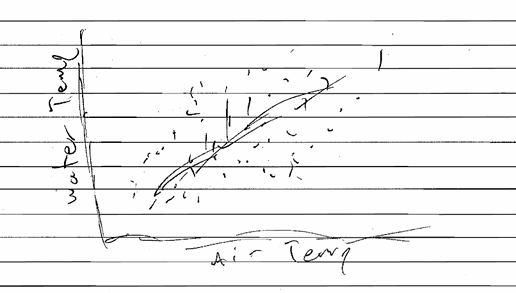 Water Temp
Air Temp